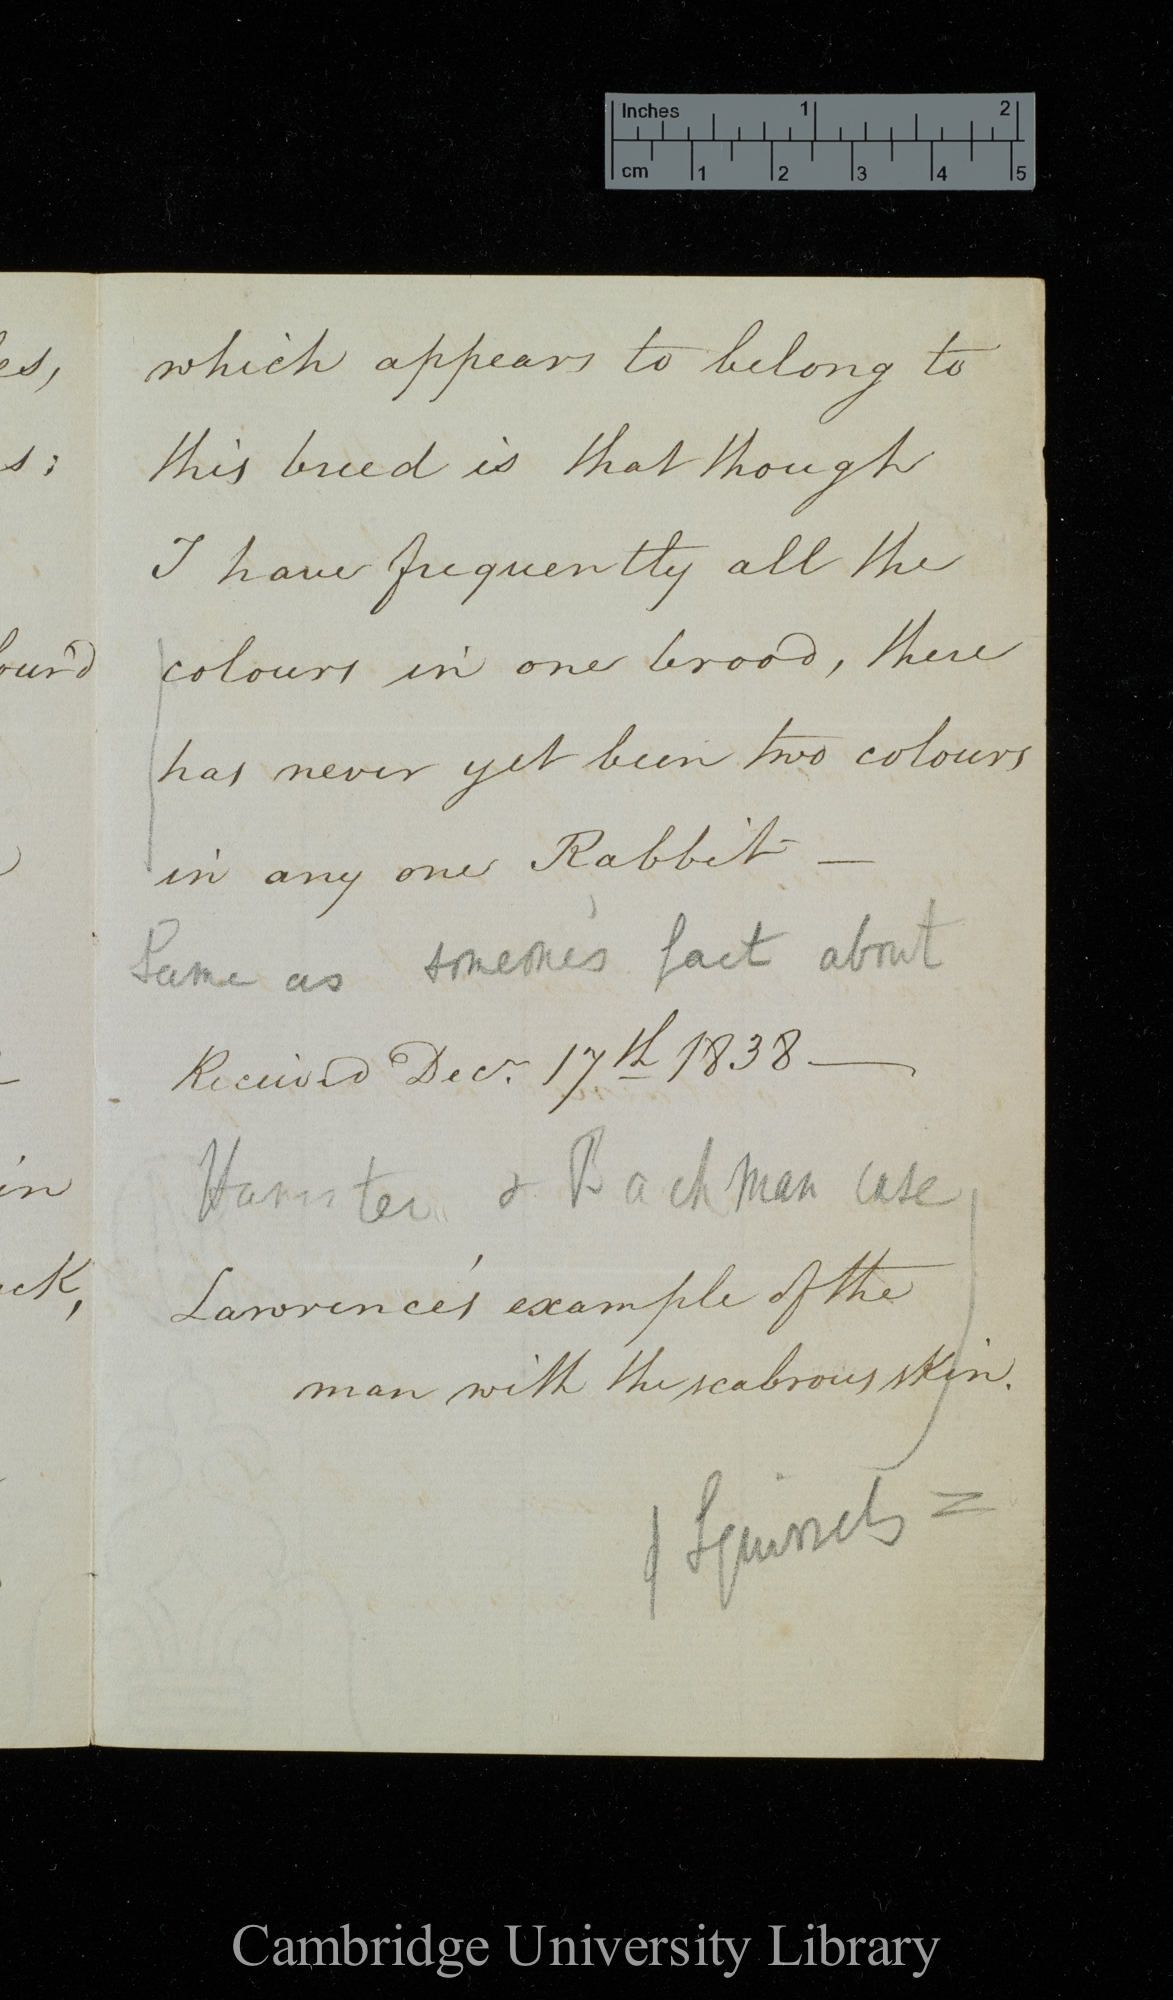 Inches 1 2
cm 1 2 3 4 5
es,
s;
our'd
in
ck,
which appears to belong to
this breed is that though
I have frequently all the
colours in one brood, there
has never yet been two colours
in any one Rabbit —
Same as someone's fact about
Received Decr. 17th 1838 —
Hamster & Bachman case
Lawrence's example of the
man with the scabrous skin.
Squirrels =
Cambridge University Library